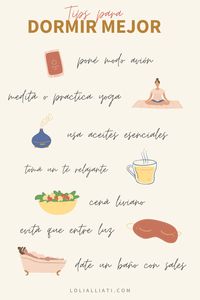 Tips para
DORMIR MEJOR
poné modo avión
meditá o practica yoga
usa aceites esenciales
tomá un té relajante
cená liviano
evitá que entre luz
date un baño con sales
LOLIALLIATI.COM